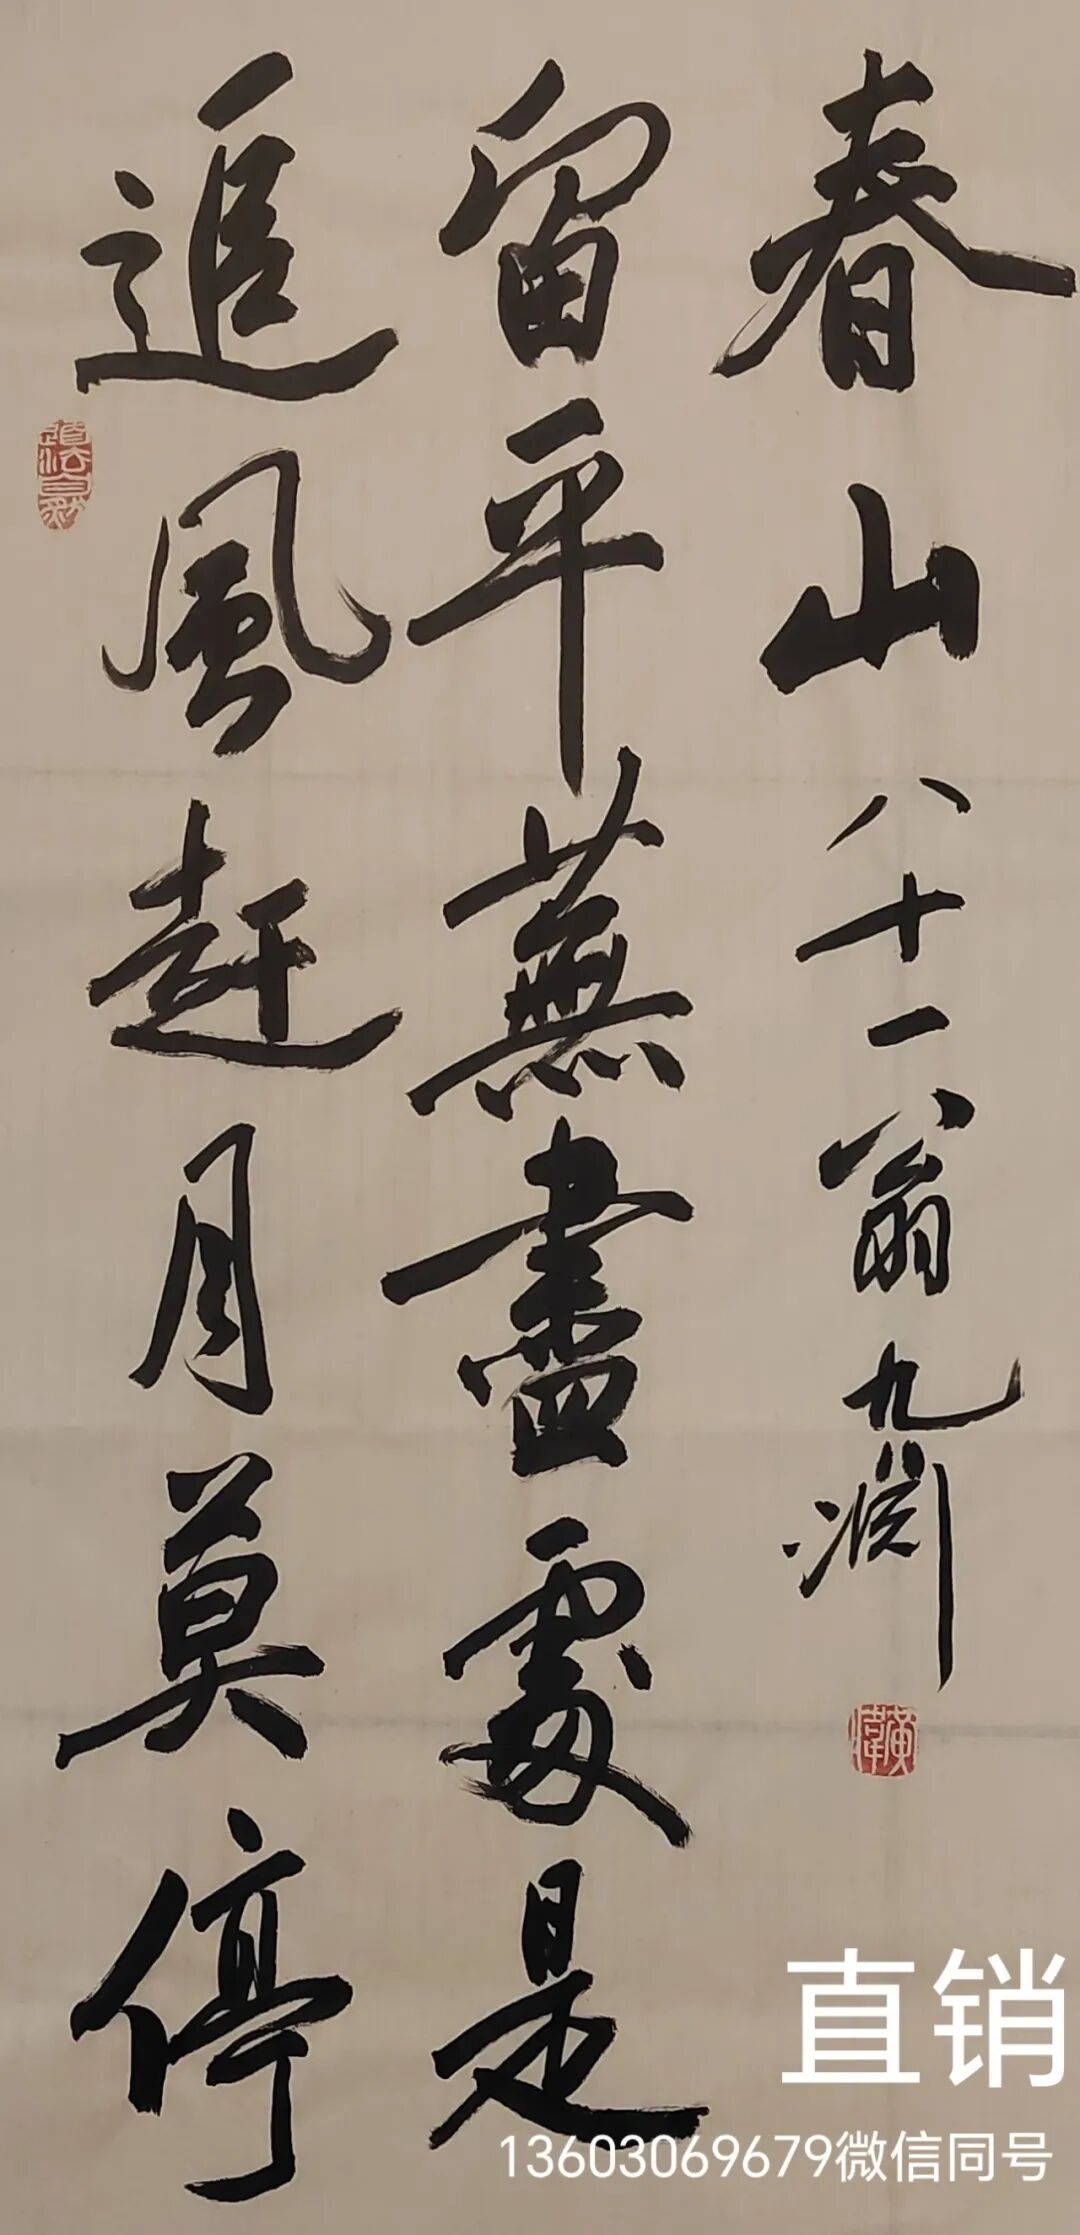 追風赶月莫停
道法自然
留平蕪盡處是
春山 八十一翁九渊
直销
13603069679微信同号